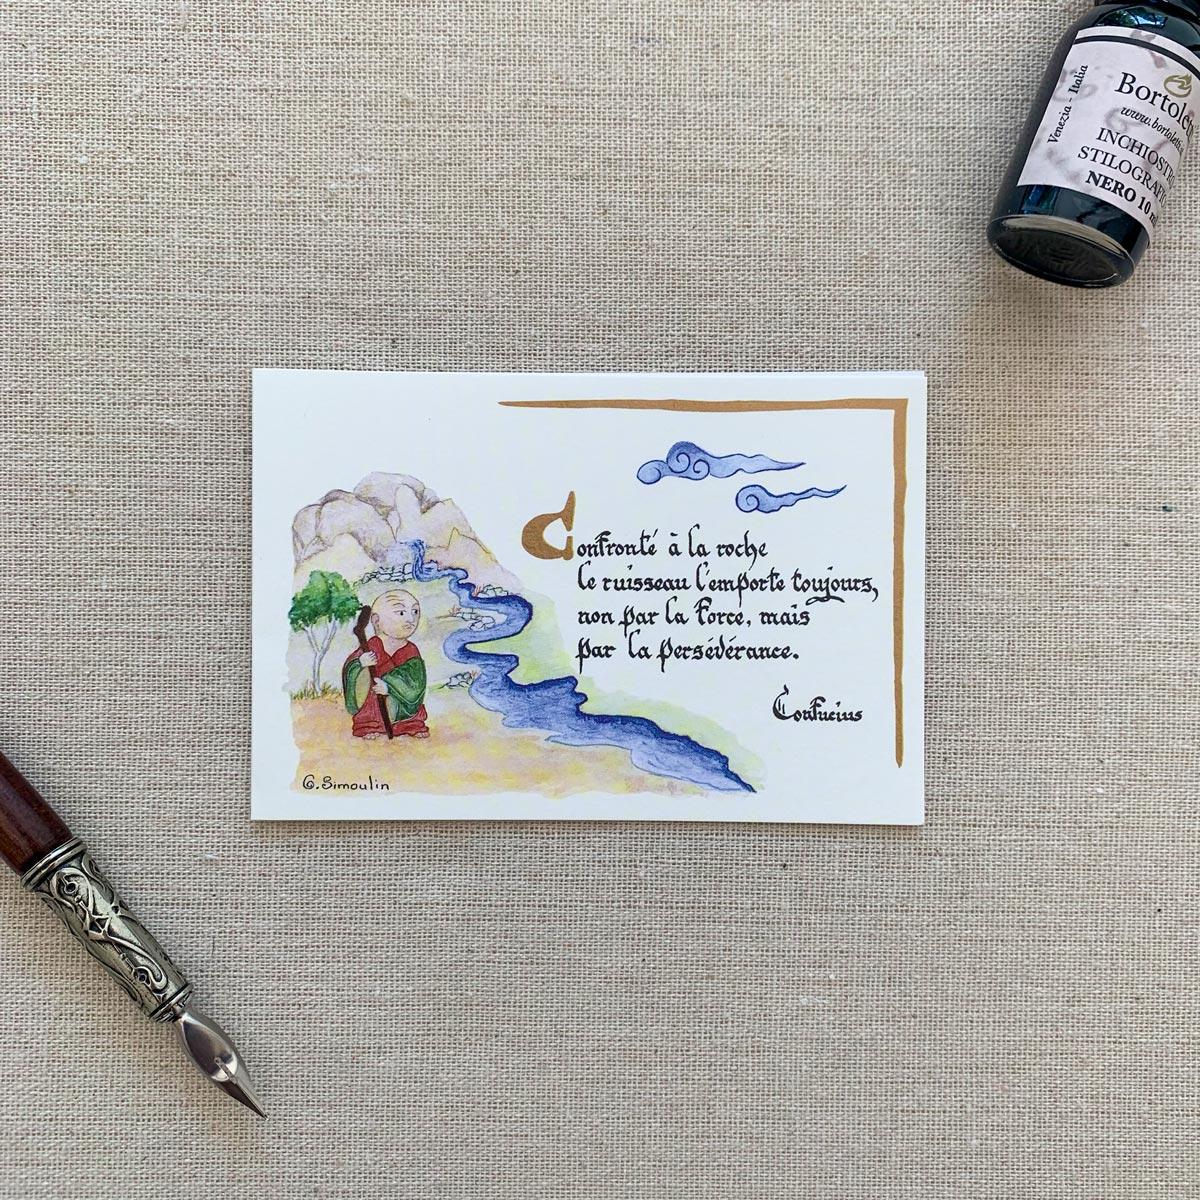 Bortolet
www.bortoletti
Venezia - Italia
INCHIOSTR
STILOGRAFI
NERO 10 m
Confronté à la roche
le ruisseau l'emporte toujours,
non par la force, mais
par la persévérance.
Confucius
G. Simoulin